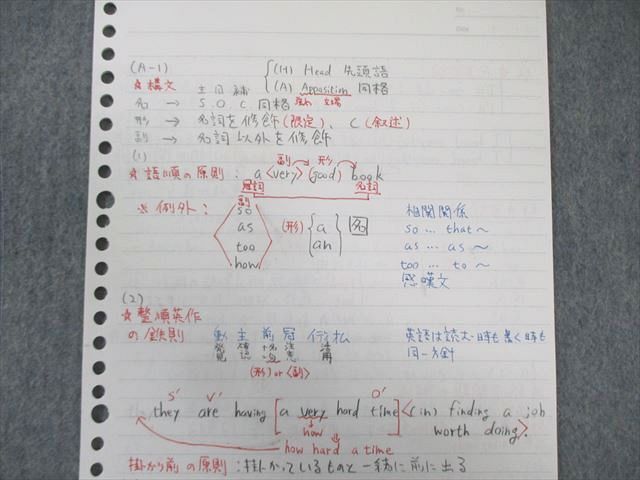 No.
Date
(A-1)
{(H) Head 先頭語
★構文 主 目 補 (A) Apposition 同格
名 → S.O.C 同格
形 → 名詞を修飾(限定)、C (叙述)
副 → 名詞以外を修飾
(1)
副 形
★語順の原則: a <very> (good) book
冠詞 名詞
※例外:
副
so
as
too
how
(形) {a
an} 名
相関関係
so … that ~
as … as ~
too … to ~
感嘆文
(2)
★整順英作
の鉄則
動 主 前 冠
発見 確認 +名 注意 活用
(形) or <副>
英語は読む時も書く時も
同一方針
S' V' O'
they are having [a very hard time] <(in) finding a job
worth doing>.
how
how hard a time
掛かり前の原則: 掛かっているものと一緒に前に出る